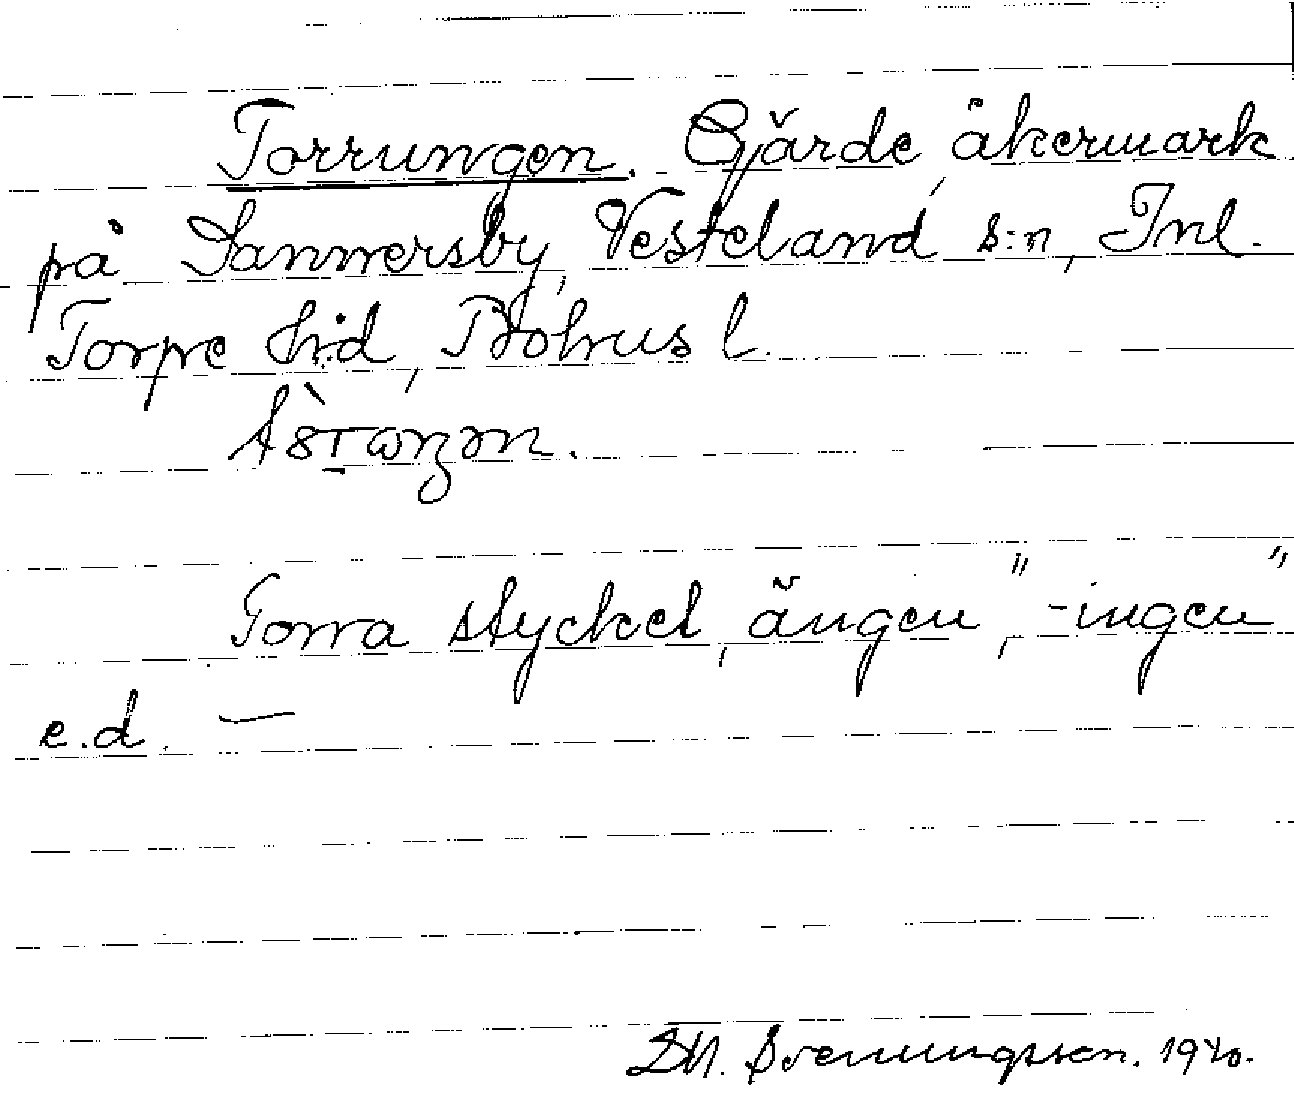 Torrungen. Gjärde, åkermark
på Sannersby, Vesteland s:n, Inl.
Torpe hrd, Bohus l.
Torra stycket, ängen", -ingen"
e.d. —
D.N. Svenningsson. 1940.